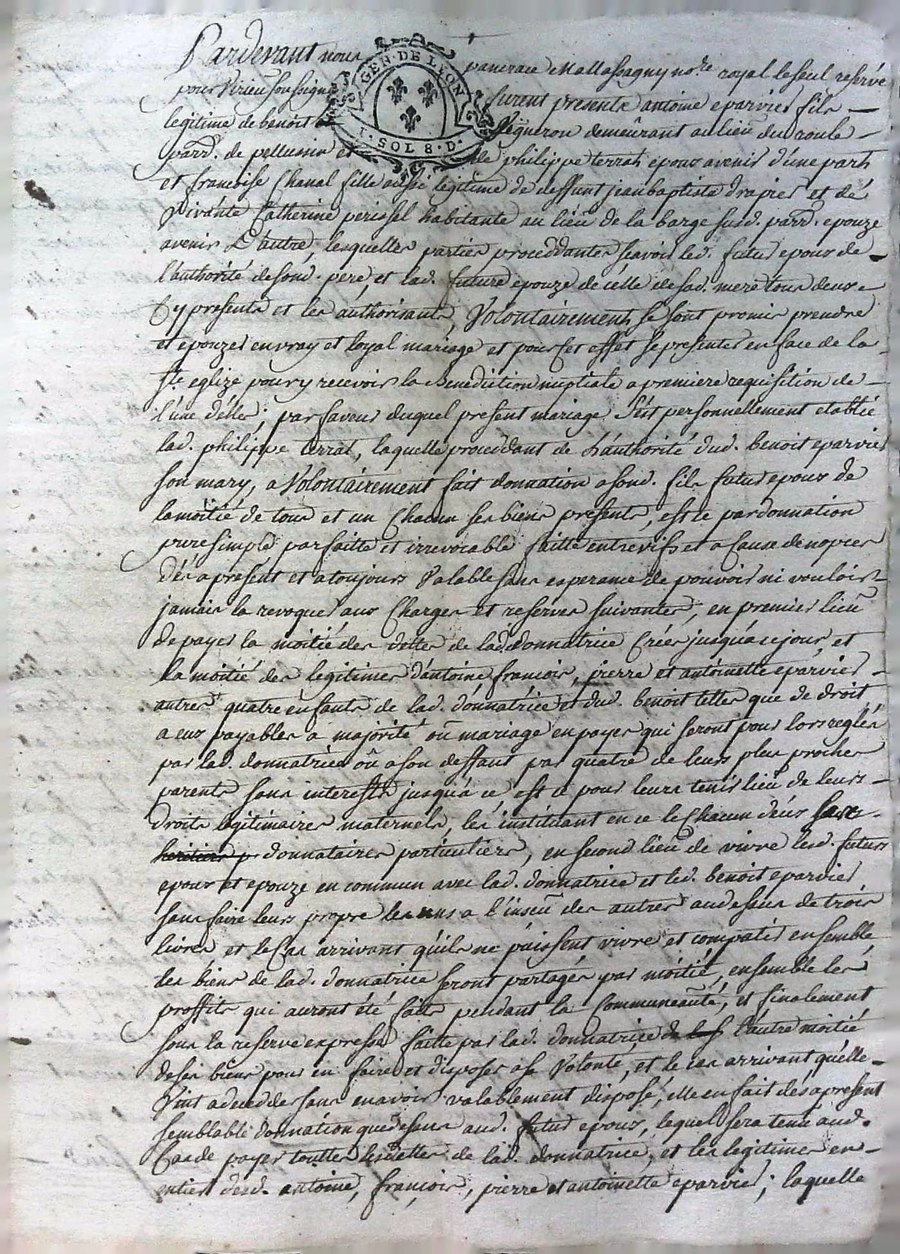 Pardevant nous pancrace Mallassagny no.re royal le seul reservé
GEN · DE LYON
1 · SOL 8 · D.
pour Virieu soussigné furent presents antoine eparvier fils
legitime de benoit vigneron demeurant au lieu du roule
parr. de pellussin et de philippe terrat epoux avenir d'une part
et francoise Chanal fille aussi legitime de deffunt jean baptiste drapier et de
Vivante Catherine perossel habitante au lieu de la barge susd. parr. epouze
avenir D'autre, lesquelles parties proceddantes sçavoir led. futur epoux de
l'authorité de sond. pere, et lad. future epouze de célle de sad. mere tous deux
Cy presents et les authorisants, Volontairement se sont promis prendre
et epouzer en vray et loyal mariage et pour cet effet se presenter en face de la
Ste eglize pour y recevoir la Benediction nuptiale a premiere requisition de
l'une d'élles; par faveur duquel present mariage s'est personnellement etablie
lad. philippe terrat, laquelle proceddant de L'authorité dud. benoit eparvier
son mary, a Volontairement fait donnation a sond. fils futur epoux de
la moitié de tous et un Chacun ses biens presents, est ce par donnation
pure simple parfaitte et irrevocable faitte entre vifs et a Cause de nopces
dés a present et a toujours Valable sans esperance de pouvoir ni vouloir
jamais la revoquer aux Charges et reserves suivantes, en premier lieu
de payer la moitié des dettes de lad. donnatrice Créés jusqu'a ce jour, et
la moitié des legitimes d'antoine francois, pierre et antoinette eparvier
autres quatre enfants de lad. donnatrice et dud. benoit telles que de droit
a eux payables a majorité ou mariage en payes qui seront pour lors reglés
par lad. donnatrice ou a son deffaut par quatre de leurs plus proches
parents sans interests jusqu'a ce est ce pour leurs tenir lieu de leurs
droits legitimaires maternels, les instituant en ce le Chacun d'eux ses
heritiers p donnataires particuliers, en second lieu de vivre lesd. futurs
epoux et epouze en commun avec lad. donnatrice et led. benoit eparvier
sans faire leurs propre les uns a l'insçu des autres au dessus de trois
livres, et le Cas arrivant qu'ils ne puissent vivre et compatir ensemble
les biens de lad. donnatrice seront partagés par moitié, ensemble les
proffits qui auront été faits pendant la Communeauté, et finalement
sous la reserve expresse faitte par lad. donnatrice l'autre moitié
de ses biens pour en faire et disposer a sa Volonté, et le cas arrivant qu'elle
Vint a decedder sans en avoir valablement disposé, elle en fait dés a present
semblable donnation que dessus aud. futur epoux, lequel sera tenu aud.
Cas de payer touttes les dettes de lad. donnatrice, et les legitimes en
entier desd. antoine, francois, pierre et antoinette eparvier; laquelle